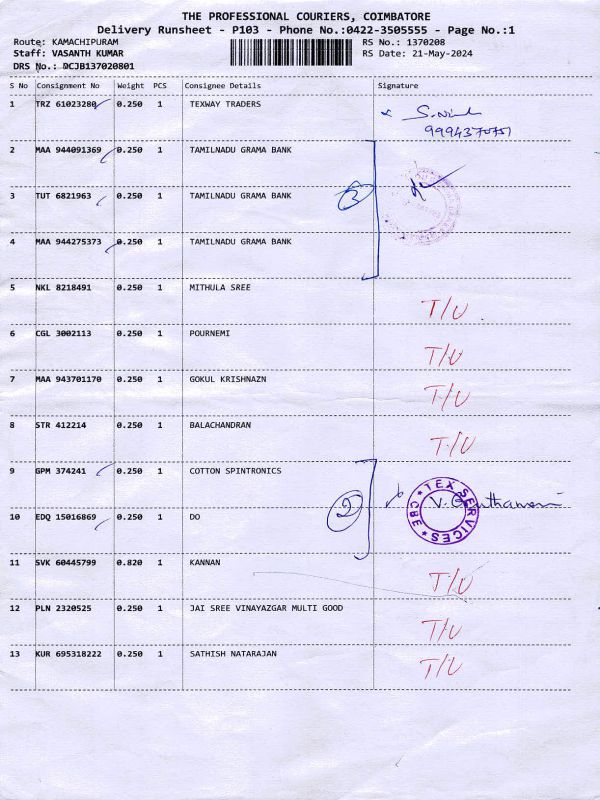 THE PROFESSIONAL COURIERS, COIMBATORE
Delivery Runsheet - P103 - Phone No.:0422-3505555 - Page No.:1
Route: KAMACHIPURAM RS No.: 1370208
Staff: VASANTH KUMAR RS Date: 21-May-2024
DRS No.: DCJB137020801
S No Consignment No Weight PCS Consignee Details Signature
1 TRZ 61023280 0.250 1 TEXWAY TRADERS
9994370751
2 MAA 944091369 0.250 1 TAMILNADU GRAMA BANK
3 TUT 6821963 0.250 1 TAMILNADU GRAMA BANK
3
4 MAA 944275373 0.250 1 TAMILNADU GRAMA BANK
5 NKL 8218491 0.250 1 MITHULA SREE T/U
6 CGL 3002113 0.250 1 POURNEMI T/U
7 MAA 943701170 0.250 1 GOKUL KRISHNAZN T/U
8 STR 412214 0.250 1 BALACHANDRAN T/U
9 GPM 374241 0.250 1 COTTON SPINTRONICS
2 TEX SERVICES CBE
10 EDQ 15016869 0.250 1 DO
11 SVK 60445799 0.820 1 KANNAN T/U
12 PLN 2320525 0.250 1 JAI SREE VINAYAZGAR MULTI GOOD T/U
13 KUR 695318222 0.250 1 SATHISH NATARAJAN T/U